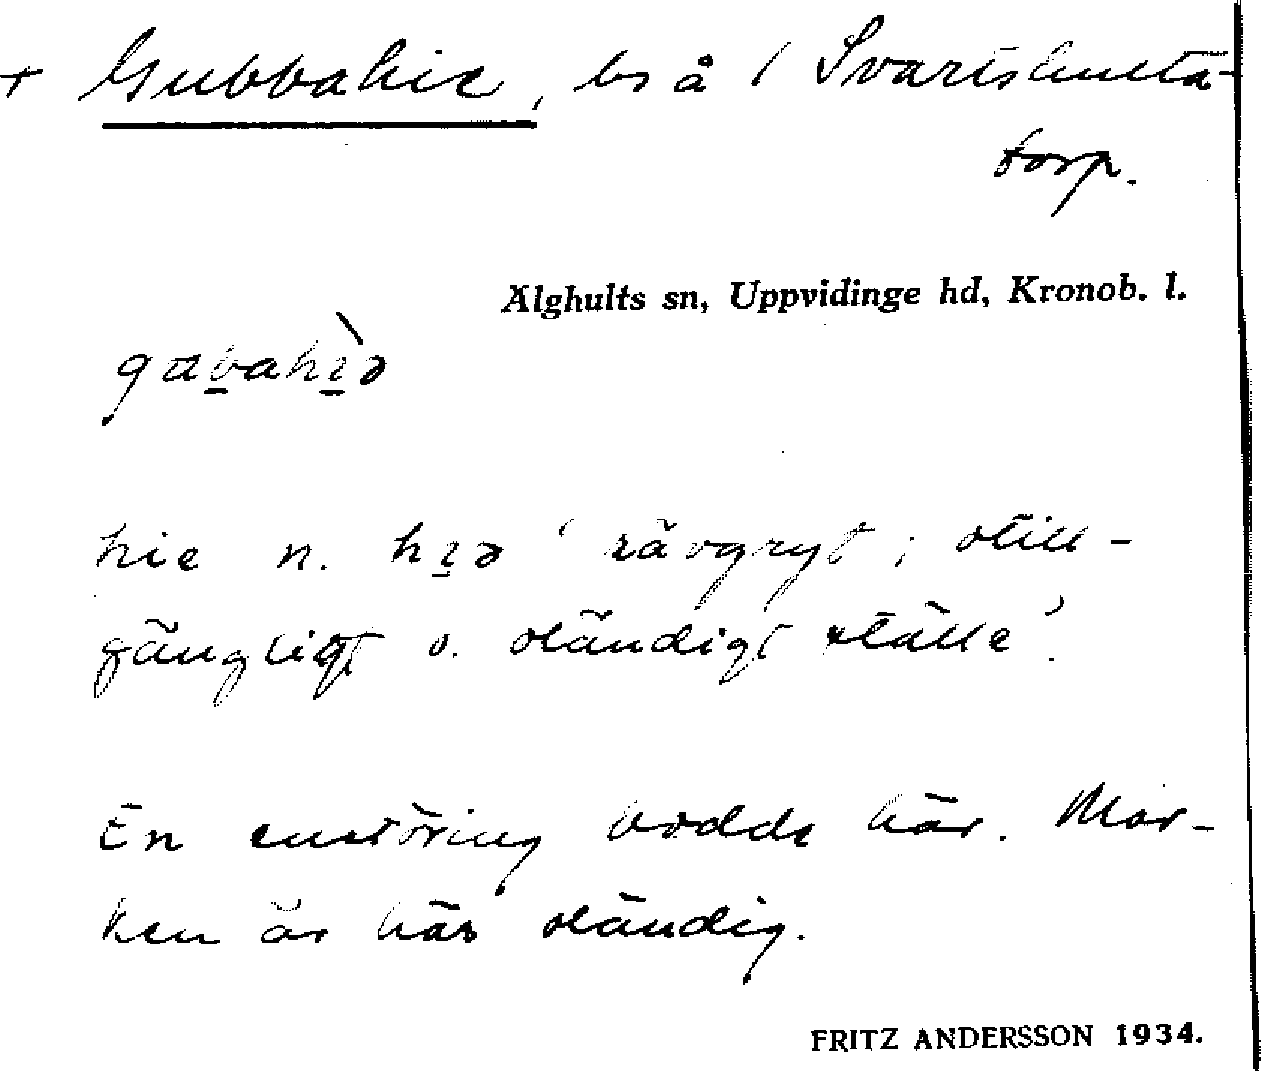 + Gubbahie, bs å 1 Svartshulta-
torp.
Älghults sn, Uppvidinge hd, Kronob. l.
gɑb̲ahì̲ə
hie n. hi̲ə ' rävgryt ; otill-
gängligt o. oländigt ställe'.
En enstöring bodde här. Mar-
ken är här oländig.
FRITZ ANDERSSON 1934.